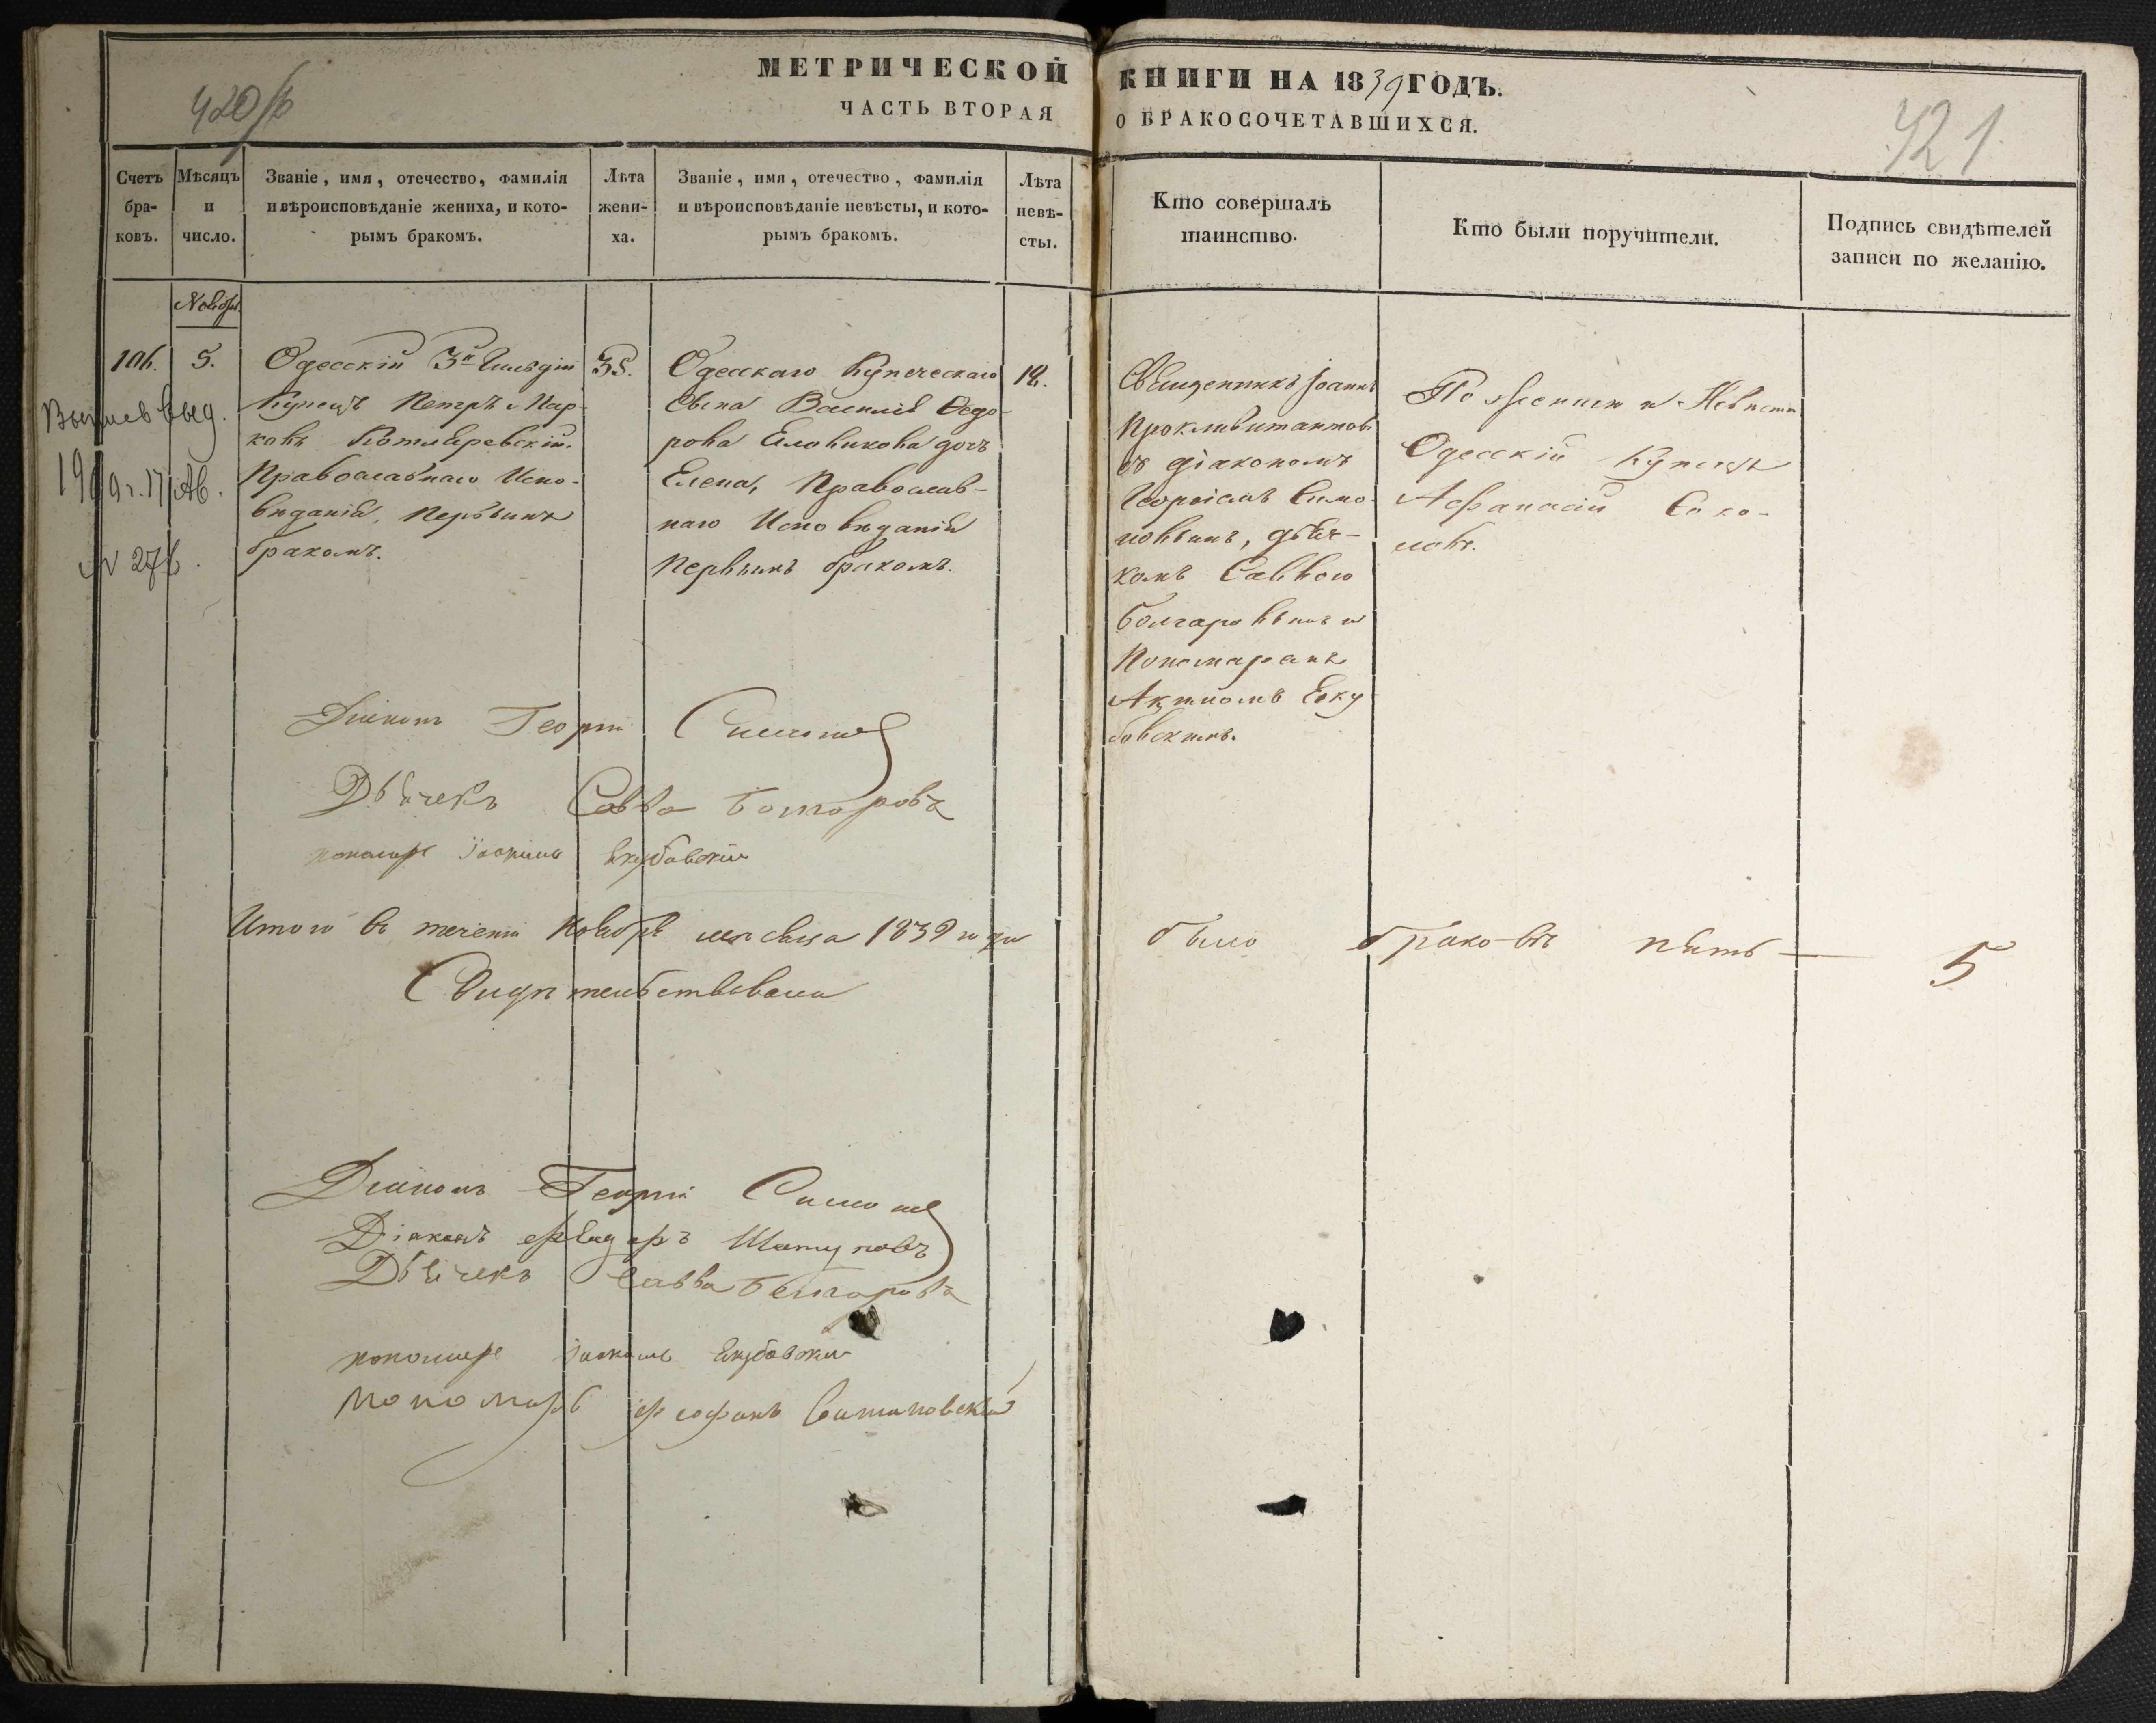 420 об
МЕТРИЧЕСКОЙ КНИГИ НА 1839 ГОДЪ.
ЧАСТЬ ВТОРАЯ О БРАКОСОЧЕТАВШИХСЯ.
421
Счетъ бра-ковъ.
Мѣсяцъ и число.
Званіе, имя, отечество, фамилія
и вѣроисповѣданіе жениха, и кото-
рымъ бракомъ.
Лѣта жени-ха.
Званіе, имя, отечество, фамилія
и вѣроисповѣданіе невѣсты, и кото-
рымъ бракомъ.
Лѣта невѣ-сты.
Кто совершалъ
таинство.
Кто были поручители.
Подпись свидѣтелей
записи по желанію.
Ноября
106.
5.
выд.
№ 276.
Одесскій 3й Гильдіи
Купецъ Петръ Мар-
ковъ Котляревскій.
Православнаго Испо-
вѣданія, первымъ
бракомъ.
35.
Одесскаго Купеческаго
Сына Василія Ѳедо-
рова Еловикова дочь
Елена, Православ-
наго Исповѣданія
первымъ бракомъ.
18.
Священникъ Іоаннъ
съ діакономъ
Георгіемъ Симо-
новымъ, дьяч-
комъ Саввою
Болгаровымъ и
Пономаремъ
Еку-
бовскимъ.
По женихѣ и Невѣстѣ
Одесскій Купецъ
Афанасій Соко-
ловъ.
Діаконъ Георгій Симоновъ
Дьячекъ Савва Болгаровъ
пономарь Екубовскій
Итого въ теченіи Ноября мѣсяца 1839 года было браковъ пять — 5
Свидѣтельствовали
Діаконъ Георгій Симоновъ
Діаконъ Ѳеодоръ
Дьячекъ Савва Болгаровъ
пономарь Екубовскій
Пономарь Ѳеофанъ